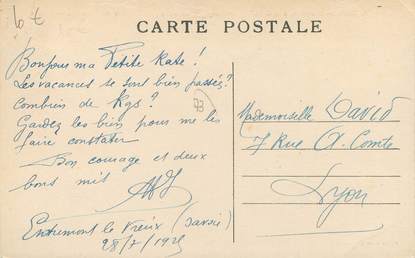 CARTE POSTALE
Bonjour ma Petite Kate !
Les vacances se sont bien passées ?
Combien de Kgs ?
Gardez les bien pour me les
faire constater
Bon courage et deux
bons
Entremont le Vieux (Savoie)
28/7/1925
Mademoiselle David
7 Rue A. Comte
Lyon